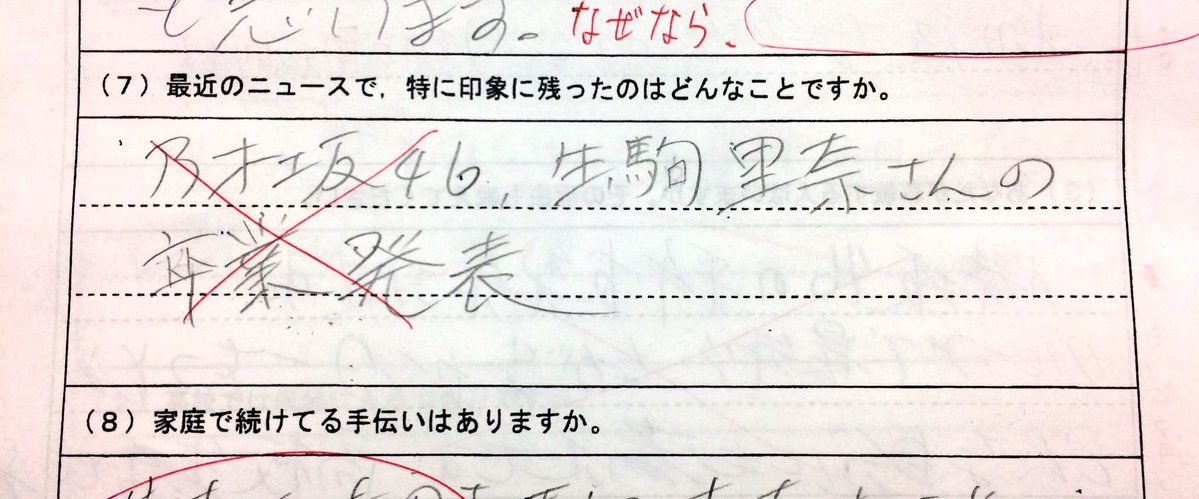 も思います。なぜなら、
(7) 最近のニュースで，特に印象に残ったのはどんなことですか。
乃木坂46、生駒里奈さんの
卒業発表
(8) 家庭で続けてる手伝いはありますか。